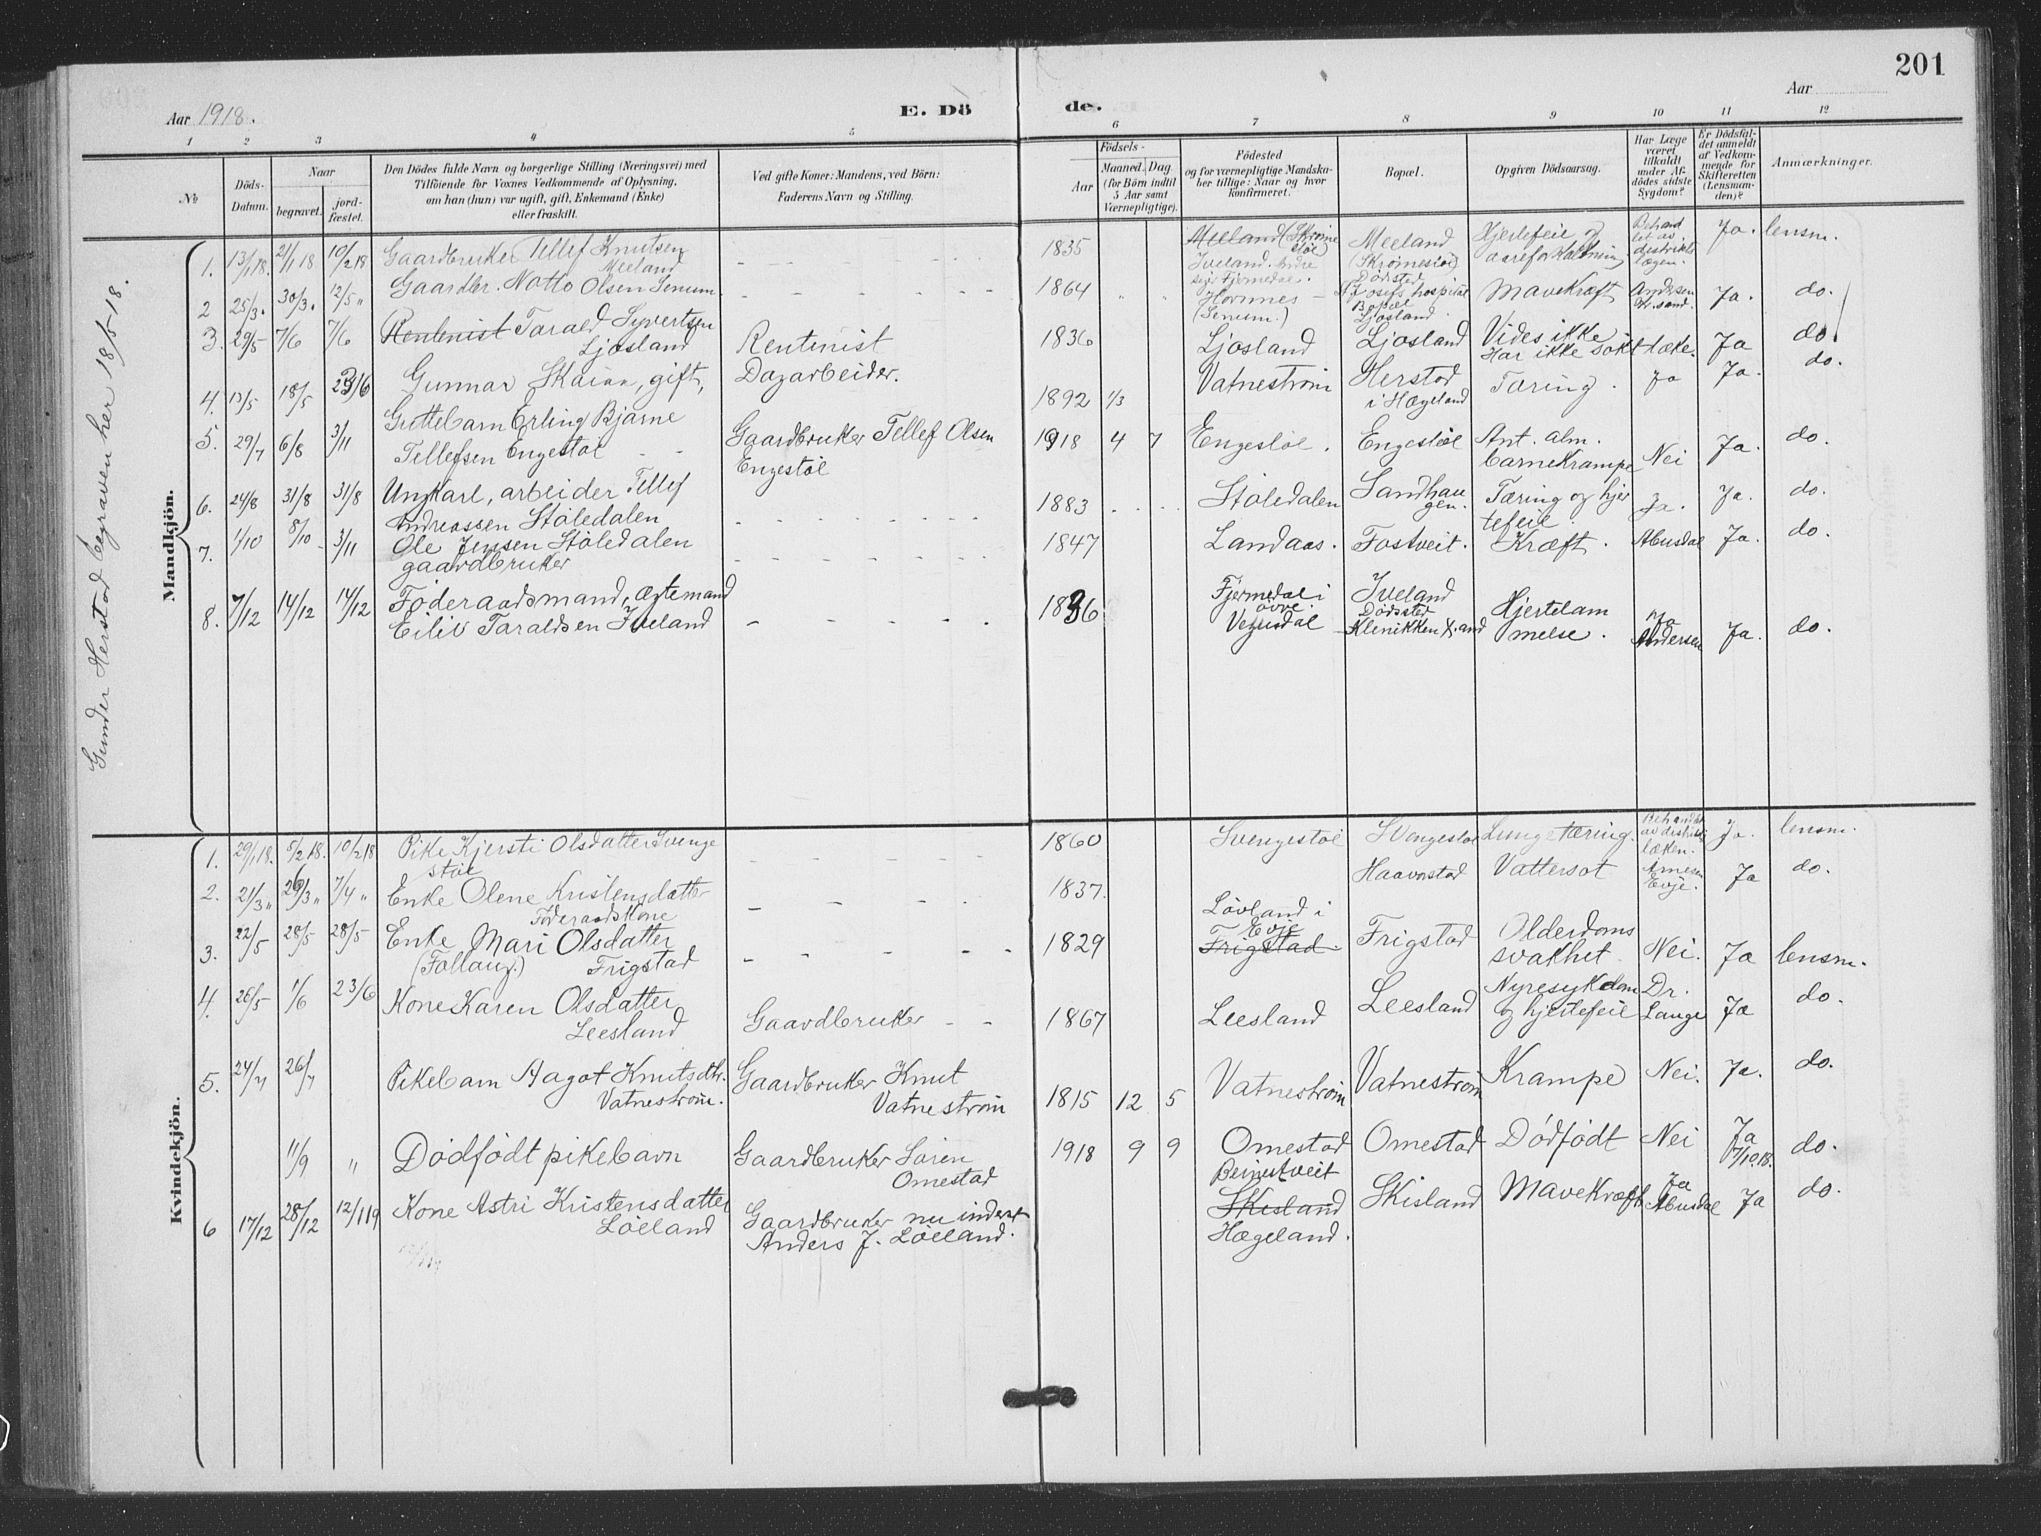 201
Aar 1918.
E. Dö
de.
Aar
1 2 3 4 5 6 7 8 9 10 11 12
No
Döds-Datum.
Naar
begravet.
jord-fæstet.
Den Dödes fulde Navn og borgerlige Stilling (Næringsvei) med
Tilföiende for Voxnes Vedkommende af Oplysning,
om han (hun) var ugift, gift, Enkemand (Enke)
eller fraskilt.
Ved gifte Koner: Mandens, ved Börn:
Faderens Navn og Stilling.
Födsels-
Aar
Maaned. Dag
(for Börn indtil
5 Aar samt
Værnepligtige).
Födested
og for værnepligtige Mandska-
ber tillige: Naar og hvor
konfirmeret.
Bopæl.
Opgiven Dödsaarsag.
Har Læge
været
tilkaldt
under Af-
dödes sidste
Sygdom?
Er Dödsfal-
det anmeldt
af Vedkom-
mende for
Skifteretten
(Lensman-
den)?
Anmærkninger.
Gunder Herstad begraven her 18/5-18.
Mandkjön.
1. 13/1 18. 21/1 18 10/2 18 Gaardbruker Tellef Knutsen
Meeland
1835 Meeland (Skrömestöl)
Iveland.
Meeland
(Skrömestöl)
Hjertefeil og
aareforkalkning
Behand
let av
distrikts
lægen.
Ja. lensm.
2 25/3. 30/3. 12/5 " Gaardbr. Notto Olsen Senum
1864 " " Hornnes
(Senum.)
Dödsted
St. Josefs hospital
Bopæl
Ljosland
Mavekræft Andersen
Kr.sand. Ja. do.
3. 29/5 7/6 7/6 Rentenist Tarald Syvertsen
Ljosland
Rentenist 1836 Ljosland Ljosland Vides ikke
Har ikke sökt læke. Ja do.
4. 13/5 18/5 23/6 Gunnar Skaiaa, gift,
Dagarbeider. 1892 1/3 Vatneström Herstad
i Hægeland Tæring. Ja Ja. do.
5. 29/7 6/8 3/11 Guttebarn Erling Bjarne
Tellefsen Engestöl
Gaardbruker Tellef Olsen
Engestöl
1918 4 7 Engestöl. Engestöl Ant. alm.
barnekrampe Nei Ja. do.
6. 24/8 31/8 31/8 Ungkarl, arbeider Tellef
Andreassen Stöledalen
1883 Stöledalen Sandhau
gen. Tæring og hjer
tefeil. Ja. Ja. do.
7. 1/10 8/10 3/11 Ole Jensen Stöledalen
gaardbruker
1847 Landaas. Fostveit. Kræft. Abusdal Ja. do.
8. 7/12 14/12 14/12 Föderaadsmand, ægtemand
Eiliv Taraldsen Iveland
1836 Fjermedal i
övre.
Vegusdal
Iveland
Dödsted
Klinikken Kr.sand
Hjertelam
melse. Ja
Andersen Ja. do.
Kvindekjön.
1. 29/1 18. 5/2 18. 10/2 18 Pike Kjersti Olsdatter Svenge
stöl
1860 Svengestöl Svengestöl Lungetæring. Behandlet
av distrikts
læken. Ja. lensm.
2. 21/3 " 26/3 " 7/4 " Enke Olene Kristensdatter
Föderaadskone
1837. Haavorstad Vattersot
Evje. Ja do.
3. 22/5 28/5 28/5 Enke Mari Olsdatter
Frigstad
1829 Lövland i
Evje
Frigstad.
Frigstad Olderdoms
svakhet. Nei. Ja lensm.
4. 26/5 1/6 23/6 Kone Karen Olsdatter
Leesland
Gaardbruker 1867 Leesland Leesland Nyresykdom
og hjertefeil Dr.
Lange Ja do.
5. 24/7 26/7 Pikebarn Aagot Knutsdtr.
Vatneström.
Gaardbruker Knut
Vatneström
1815 12 5 Vatneström Vatneström Krampe Nei. Ja. do.
11/9 " Dödfödt pikebarn
Gaardbruker Sören
Omestad
1918 9 9 Omestad Omestad Dödfödt Nei Ja
7/10 18. do.
6 17/12 28/12 12/1 19 Kone Astri Kristensdatter
Löland
Gaardbruker nu inderst
Anders J. Löland.
Beinestveit
Skisland
Hægeland.
Skisland Mavekræft Ja
Abusdal Ja do.